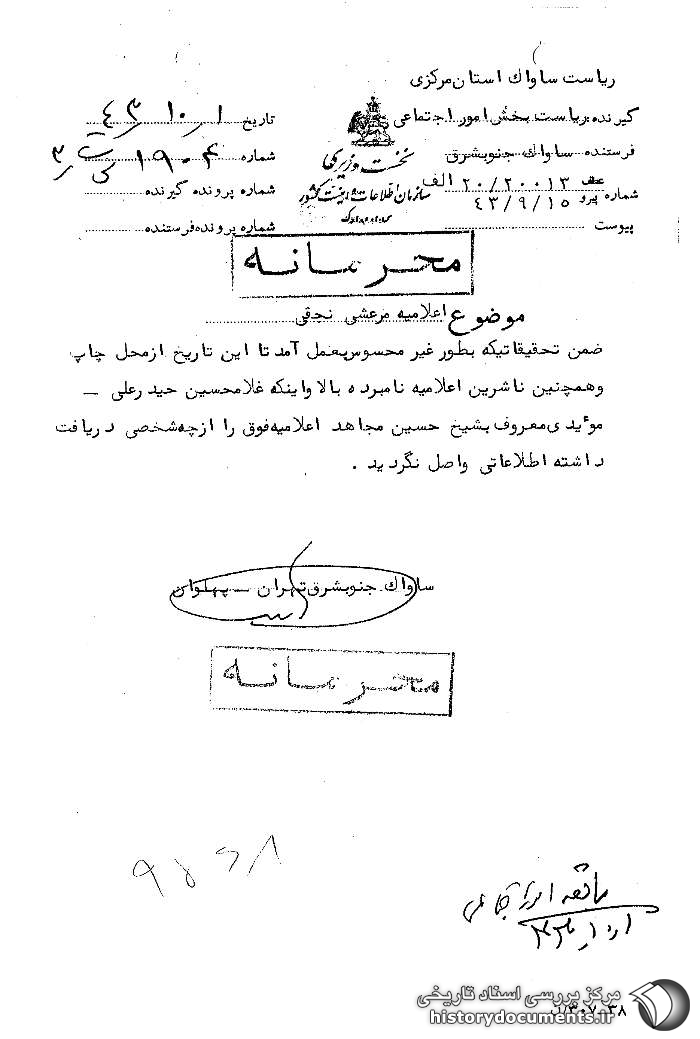 ریاست ساواک استان مرکزی
گیرنده: ریاست بخش امور اجتماعی
فرستنده ساواک جنوبشرق
شماره پیرو عطف ۲۰/۲۰۰۱۳ الف
۴۳/۹/۱۵
پیوست
نخست وزیری
سازمان اطلاعات و امنیت کشور
تاریخ ۴۳/۱۰/۱
شماره ۱۹۰۴
شماره پرونده گیرنده
شماره پرونده فرستنده
محرمانه
موضوع اعلامیه مرعشی نجفی
ضمن تحقیقاتیکه بطور غیر محسوس بعمل آمد تا این تاریخ از محل چاپ
وهمچنین ناشرین اعلامیه نامبرده بالا و اینکه غلامحسین حیدرعلی –
موئیدی معروف بشیخ حسین مجاهد اعلامیه فوق را از چه شخصی دریافت
داشته اطلاعاتی واصل نگردید.
ساواک جنوبشرق تهران – پهلوان
محرمانه
مرکز بررسی اسناد تاریخی
historydocuments.ir